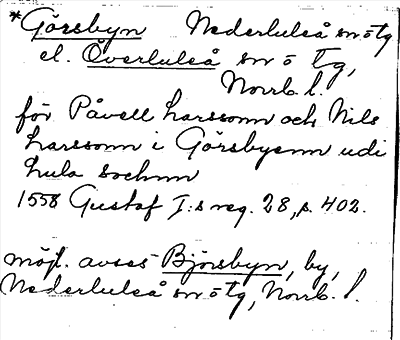 *Görsbyn Nederluleå sn o tg
el. Överluleå sn o tg,
Norrb. l.
för Påvell Larssonn och Nils
Larssonn i Görsbyenn udi
Lula sochnn
1558 Gustaf I:s reg. 28, s. 402.
möjl. avses Björsbyn, by,
Nederluleå sn o tg, Norrb. l.